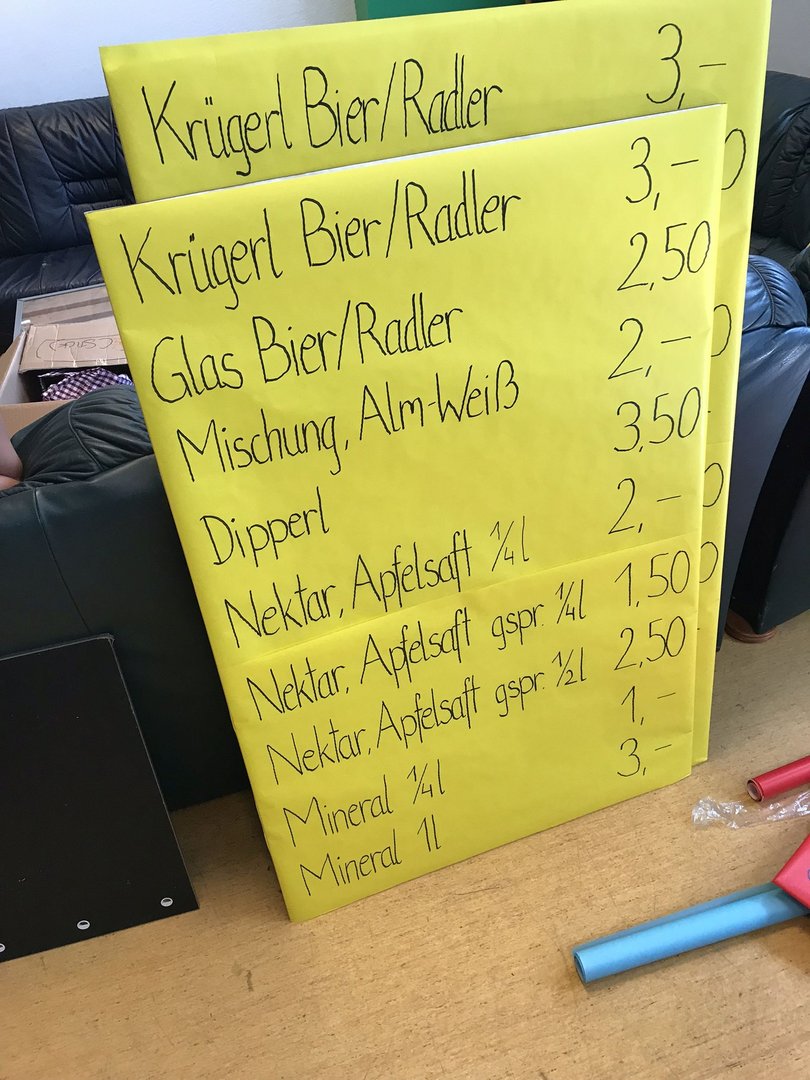 Krügerl Bier/Radler 3,-
Krügerl Bier/Radler 3,-
Glas Bier/Radler 2,50
Mischung, Alm-Weiß 2,-
Dipperl 3,50
Nektar, Apfelsaft 1/4 l 2,-
Nektar, Apfelsaft gspr. 1/4 l 1,50
Nektar, Apfelsaft gspr. 1/2 l 2,50
Mineral 1/4 l 1,-
Mineral 1l 3,-